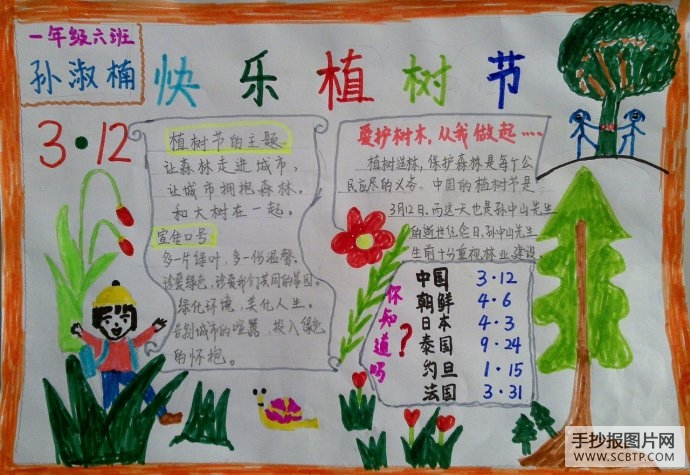 一年级六班
孙淑楠
快乐植树节
3·12
植树节的主题
让森林走进城市，
让城市拥抱森林。
和大树在一起。
宣传口号
多一片绿叶，多一份温馨。
珍爱绿色，珍爱我们共同的家园。
绿化环境，美化人生。
告别城市的喧嚣，投入绿色
的怀抱。
爱护树木，从我做起……
植树造林，保护森林是每个公
民应尽的义务。中国的植树节是
3月12日，而这一天也是孙中山先生
的逝世纪念日，孙中山先生
生前十分重视林业建设。
你知道吗？
中国 3·12
朝鲜 4·6
日本 4·3
泰国 9·24
约旦 1·15
法国 3·31
手抄报图片网
WWW.SCBTP.COM